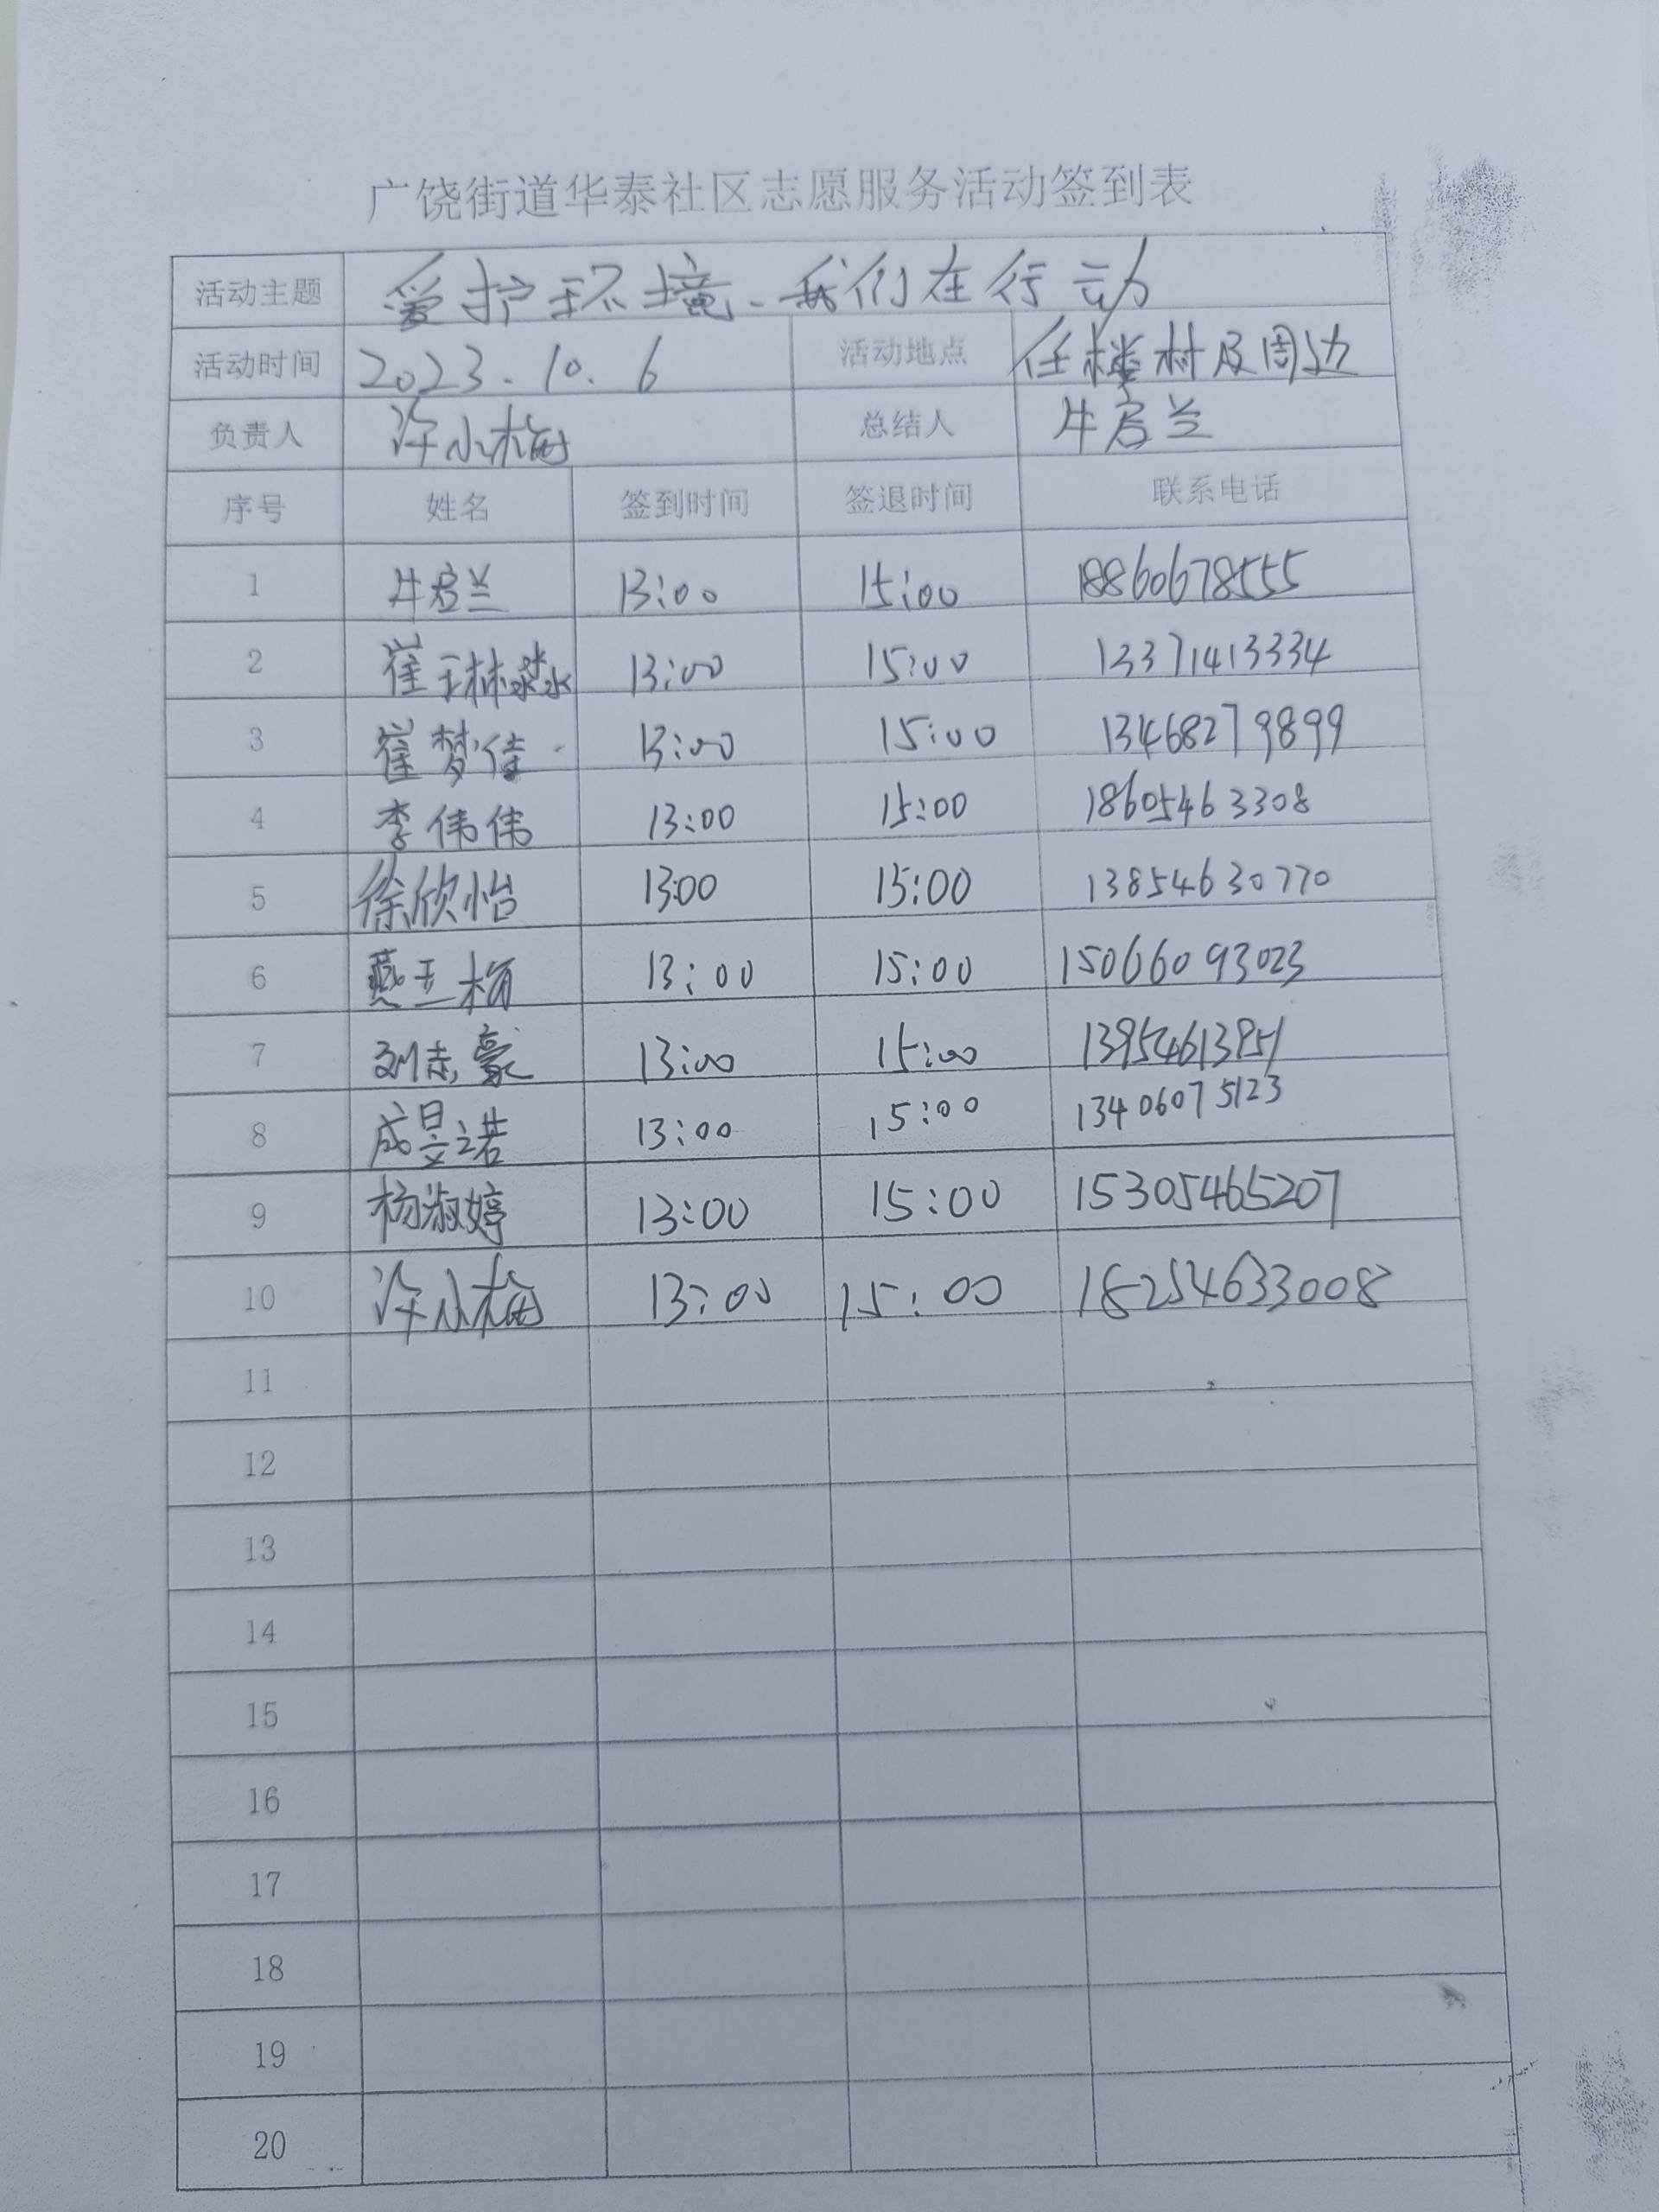 广饶街道华泰社区志愿服务活动签到表
活动主题 爱护环境、我们在行动
活动时间 2023.10.6 活动地点 任楼村及周边
负责人 许小梅 总结人 牛启兰
序号 姓名 签到时间 签退时间 联系电话
1 牛启兰 13:00 15:00 18860678555
2 崔玉林 13:00 15:00 13371413334
3 崔梦佳 13:00 15:00 13468279899
4 李伟伟 13:00 15:00 18605463308
5 徐欣怡 13:00 15:00 13854630770
6 燕玉梅 13:00 15:00 15066093023
7 刘志豪 13:00 15:00 13954613851
8 成昱诺 13:00 15:00 13406075123
9 杨淑婷 13:00 15:00 15305465207
10 许小梅 13:00 15:00 18254633008
11
12
13
14
15
16
17
18
19
20